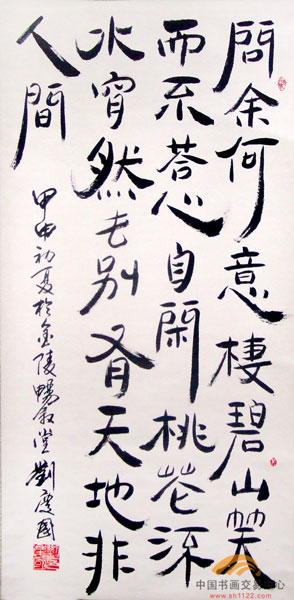 問余何意棲碧山笑
而不答心自閑桃花流
水窅然去别有天地非
人間
甲申初夏於金陵暢叙堂劉國
中国书画交易中心
www.sh1122.com